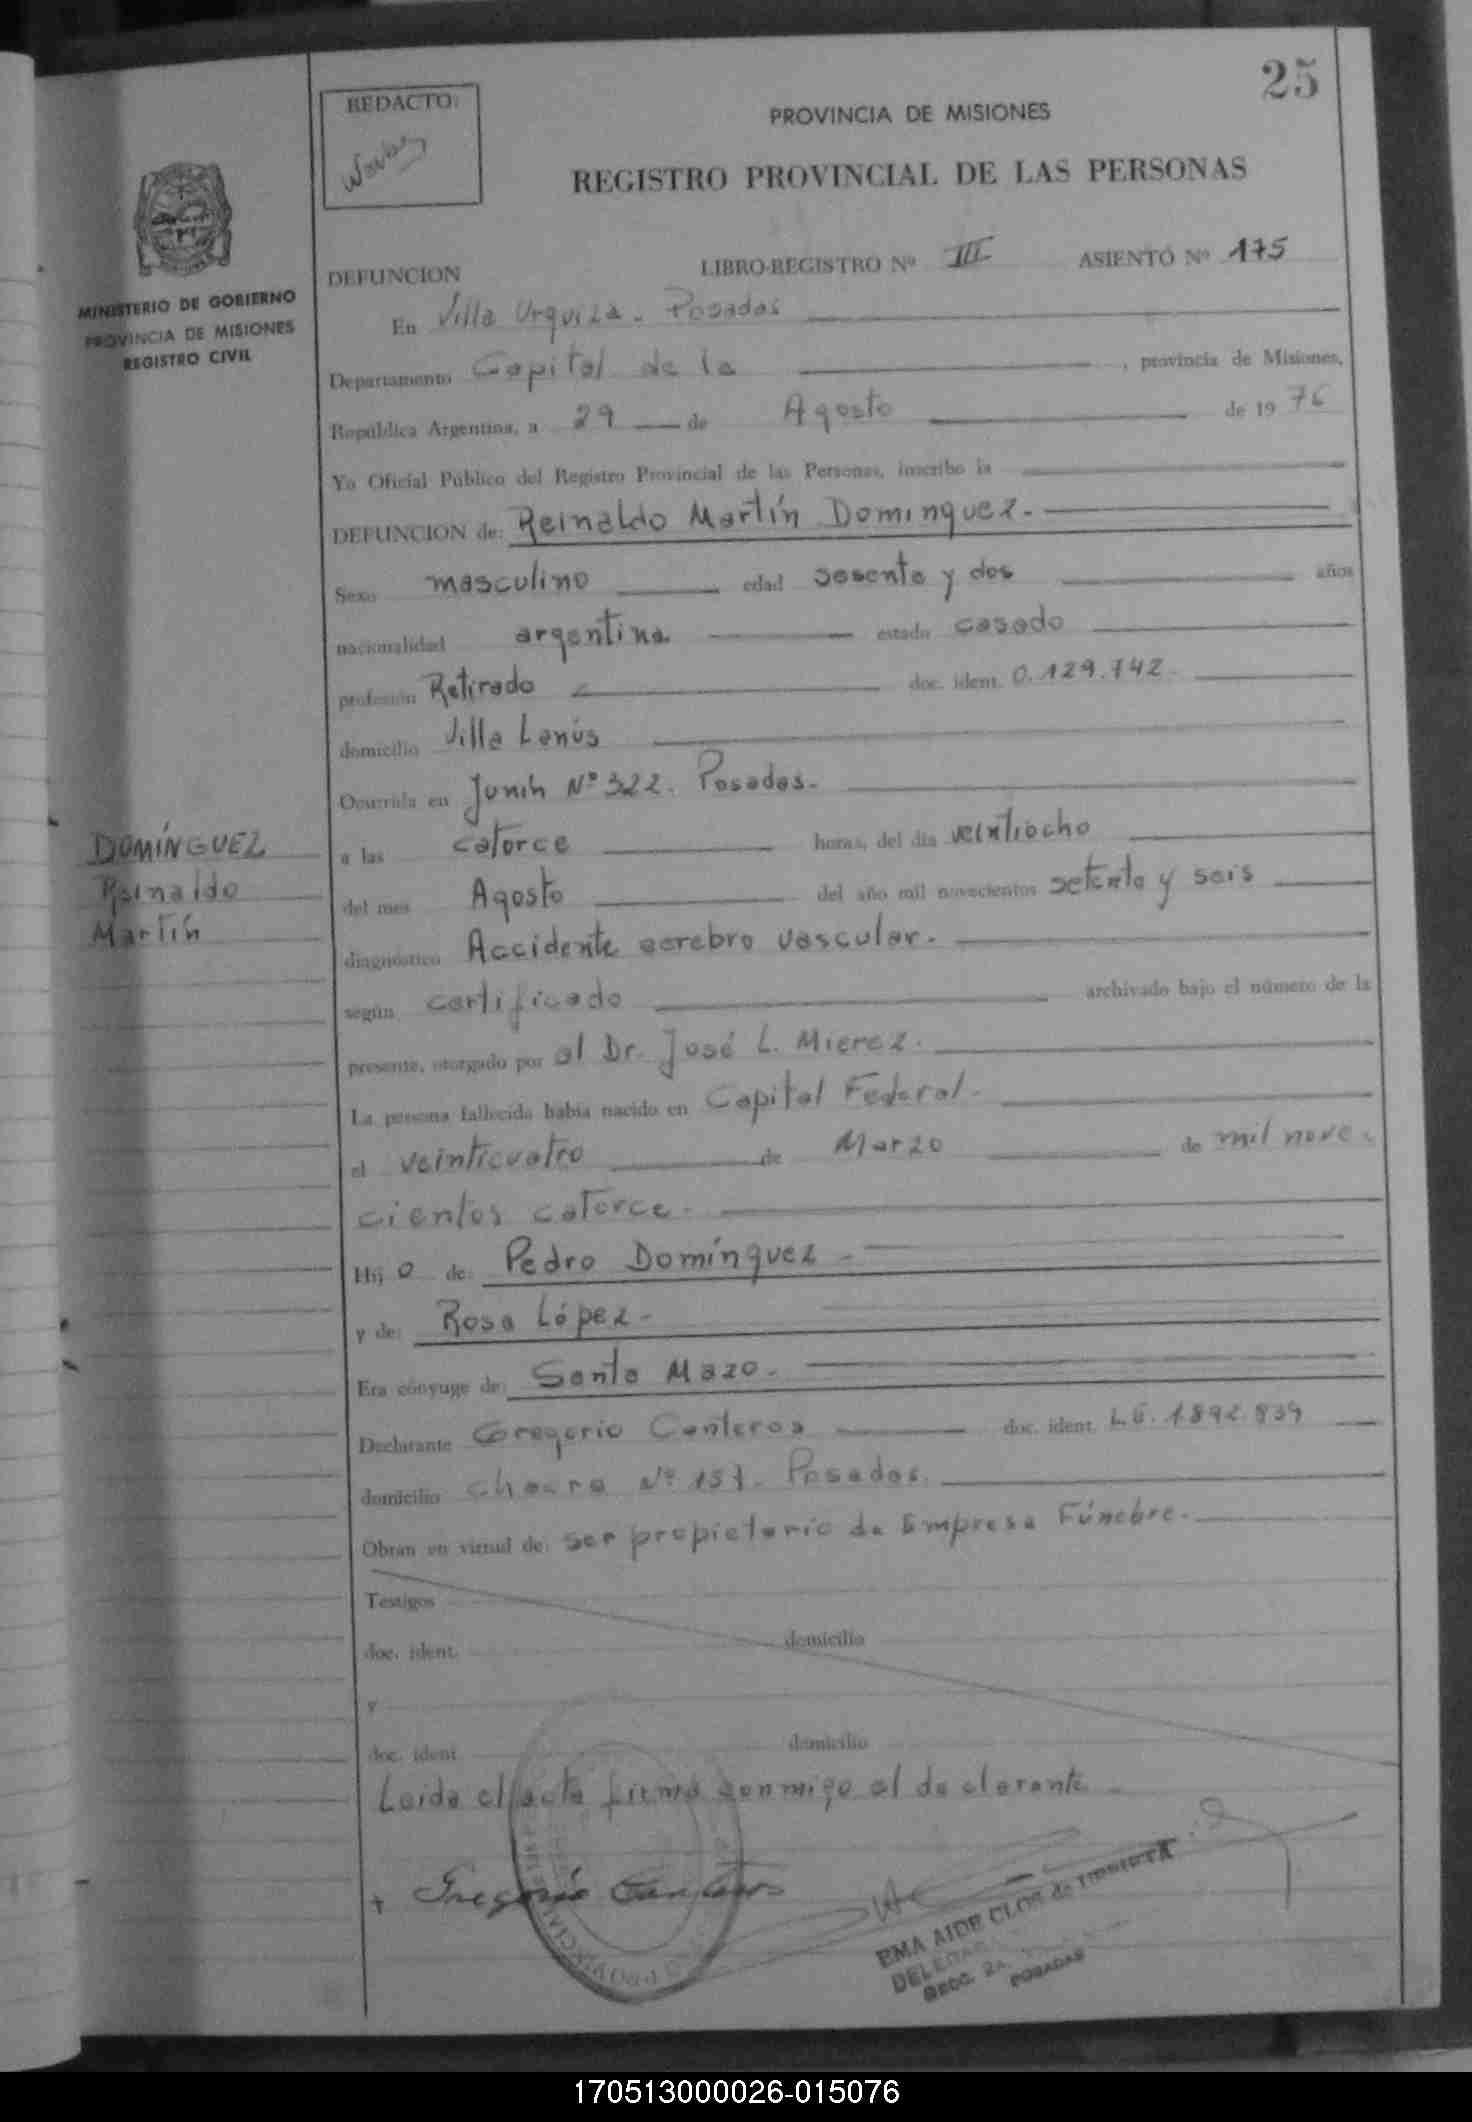 25
REDACTO:
PROVINCIA DE MISIONES
REGISTRO PROVINCIAL DE LAS PERSONAS
MINISTERIO DE GOBIERNO
PROVINCIA DE MISIONES
REGISTRO CIVIL
DEFUNCION LIBRO-REGISTRO Nº III ASIENTO Nº 175
En Villa Urquiza - Posadas
Departamento Capital de la , provincia de Misiones,
República Argentina, a 29 de Agosto de 1976
Yo Oficial Público del Registro Provincial de las Personas, inscribo la
DEFUNCION de: Reinaldo Martín Dominguez.-
Sexo masculino edad sesenta y dos años
nacionalidad argentina estado casado
profesión Retirado doc. ident. 0.129.742.-
domicilio Villa Lanús
Ocurrida en Junín Nº 322. Posadas.-
DOMÍNGUEZ
Reinaldo
Martín
a las catorce horas, del día veintiocho
del mes Agosto del año mil novecientos setenta y seis
diagnóstico Accidente cerebro vascular.-
según certificado archivado bajo el número de la
presente, otorgado por el Dr. José L. Mierez.
La persona fallecida había nacido en Capital Federal.-
el veinticuatro de Marzo de mil nove-
cientos catorce.-
Hij o de: Pedro Domínguez -
y de: Rosa López -
Era cónyuge de: Santa Mazo.-
Declarante Gregorio Canteros doc. ident. L.E. 1.892.839
domicilio Chacra Nº 151. Posadas.
Obran en virtud de: ser propietario de Empresa Fúnebre.-
Testigos
doc. ident. domicilio
y
doc. ident. domicilio
Leída el acta firma conmigo el declarante.-
Gregorio Canteros
EMA AIDE CLOS de
SECC. 2a.
POSADAS
170513000026-015076